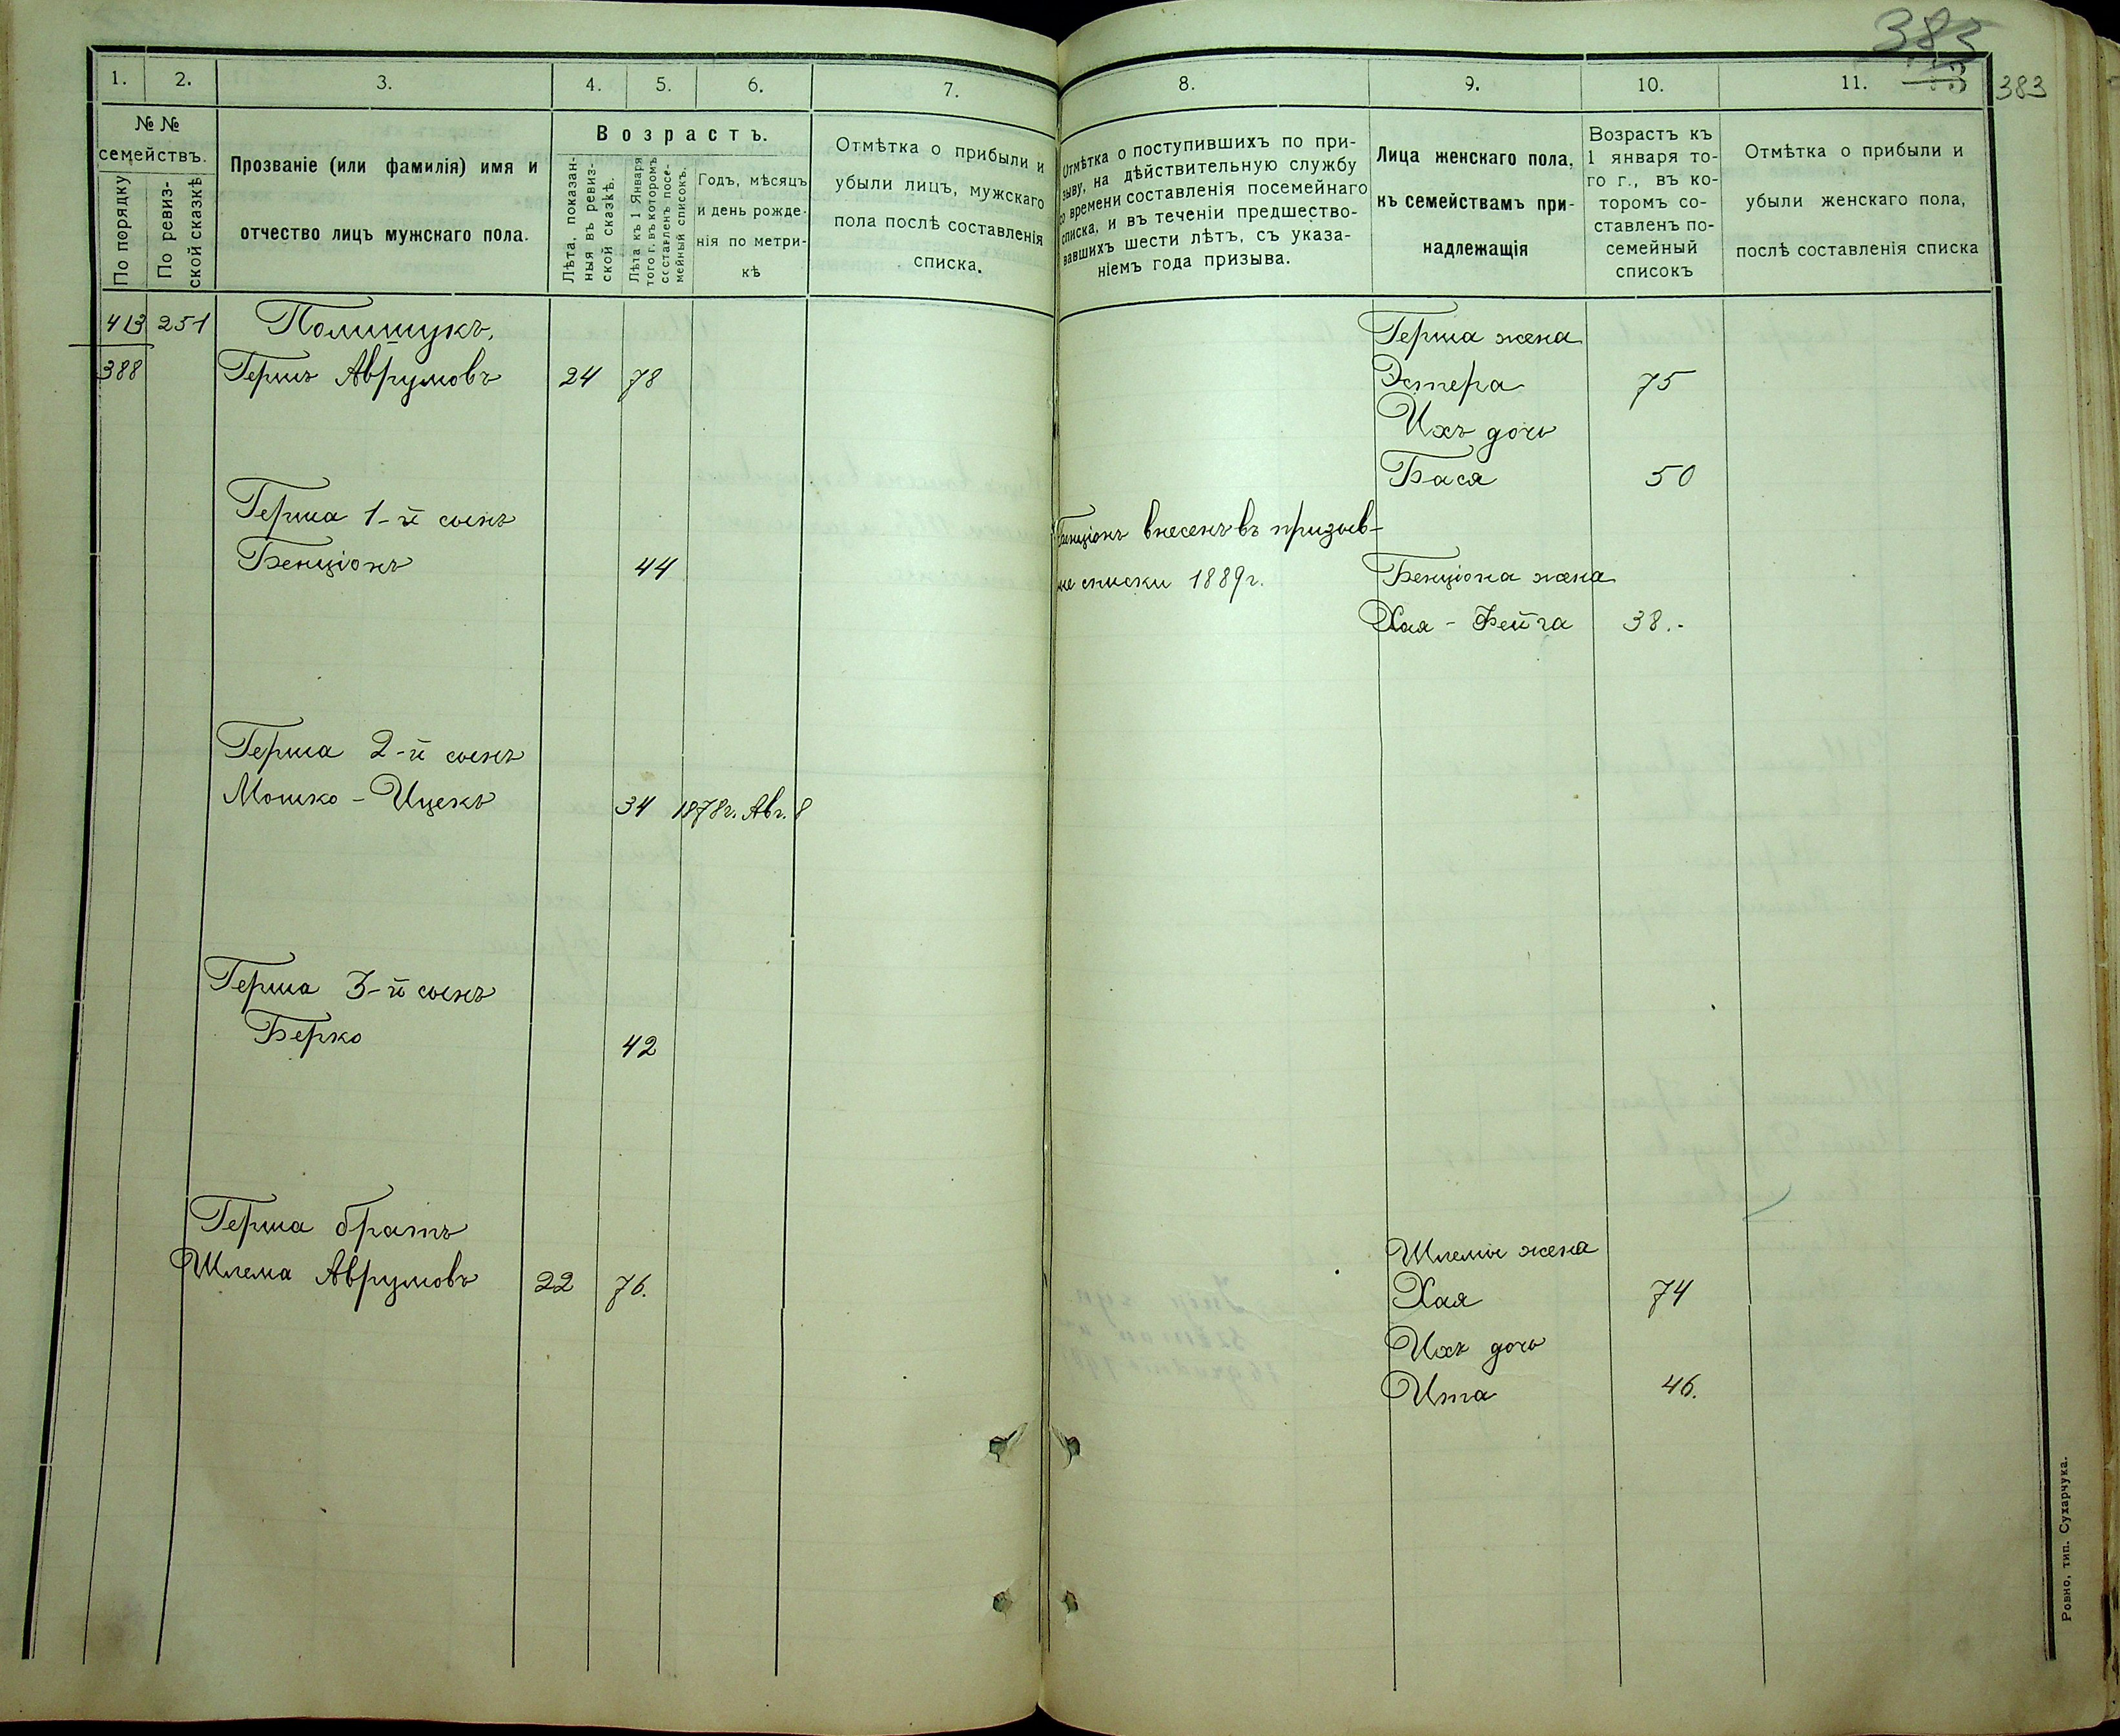 383
383
1. 2. 3. 4. 5. 6. 7.
№ № семействъ.
По порядку
По ревиз-
ской сказкѣ
Прозваніе (или фамилія) имя и
отчество лицъ мужскаго пола.
Возрастъ.
Лѣта, показан-
ныя въ ревиз-
ской сказкѣ.
Лѣта къ 1 Января
того г. въ которомъ
составленъ посе-
мейный списокъ.
Годъ, мѣсяцъ
и день рожде-
нія по метри-
кѣ
Отмѣтка о прибыли и
убыли лицъ, мужскаго
пола послѣ составленія
списка.
413 251 Полишукъ,
388 Гершъ Аврумовъ 24 78
Герша 1-й сынъ
Бенціонъ 44
Герша 2-й сынъ
Мошко-Ицекъ 34 1878г. Авг. 8
Герша 3-й сынъ
Берко 42
Герша братъ
Шлема Аврумовъ 22 76.
8. 9. 10. 11.
Отмѣтка о поступившихъ по при-
зыву, на дѣйствительную службу
со времени составленія посемейнаго
списка, и въ теченіи предшество-
вавшихъ шести лѣтъ, съ указа-
ніемъ года призыва.
Лица женскаго пола,
къ семействамъ при-
надлежащія
Возрастъ къ
1 января то-
го г., въ ко-
торомъ со-
ставленъ по-
семейный
списокъ
Отмѣтка о прибыли и
убыли женскаго пола,
послѣ составленія списка
Герша жена
Эстера 75
Ихъ дочь
Бася 50
Бенціонъ внесенъ въ призыв-
ные списки 1889г.
Бенціона жена
Хая-Фейга 38.-
Шлемы жена
Хая 74
Ихъ дочь
Ита 46.
Ровно, тип. Сухарчука.